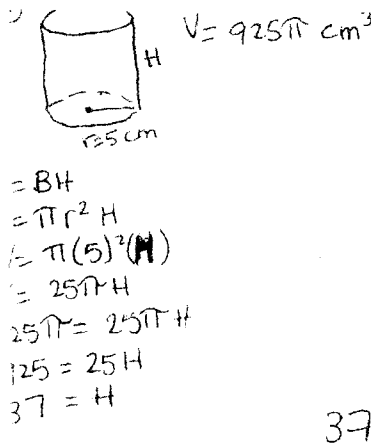 V = 925π cm³
H
r=5 cm
= BH
= πr² H
= π(5)²(H)
= 25πH
25π = 25π H
25 = 25H
37 = H
37